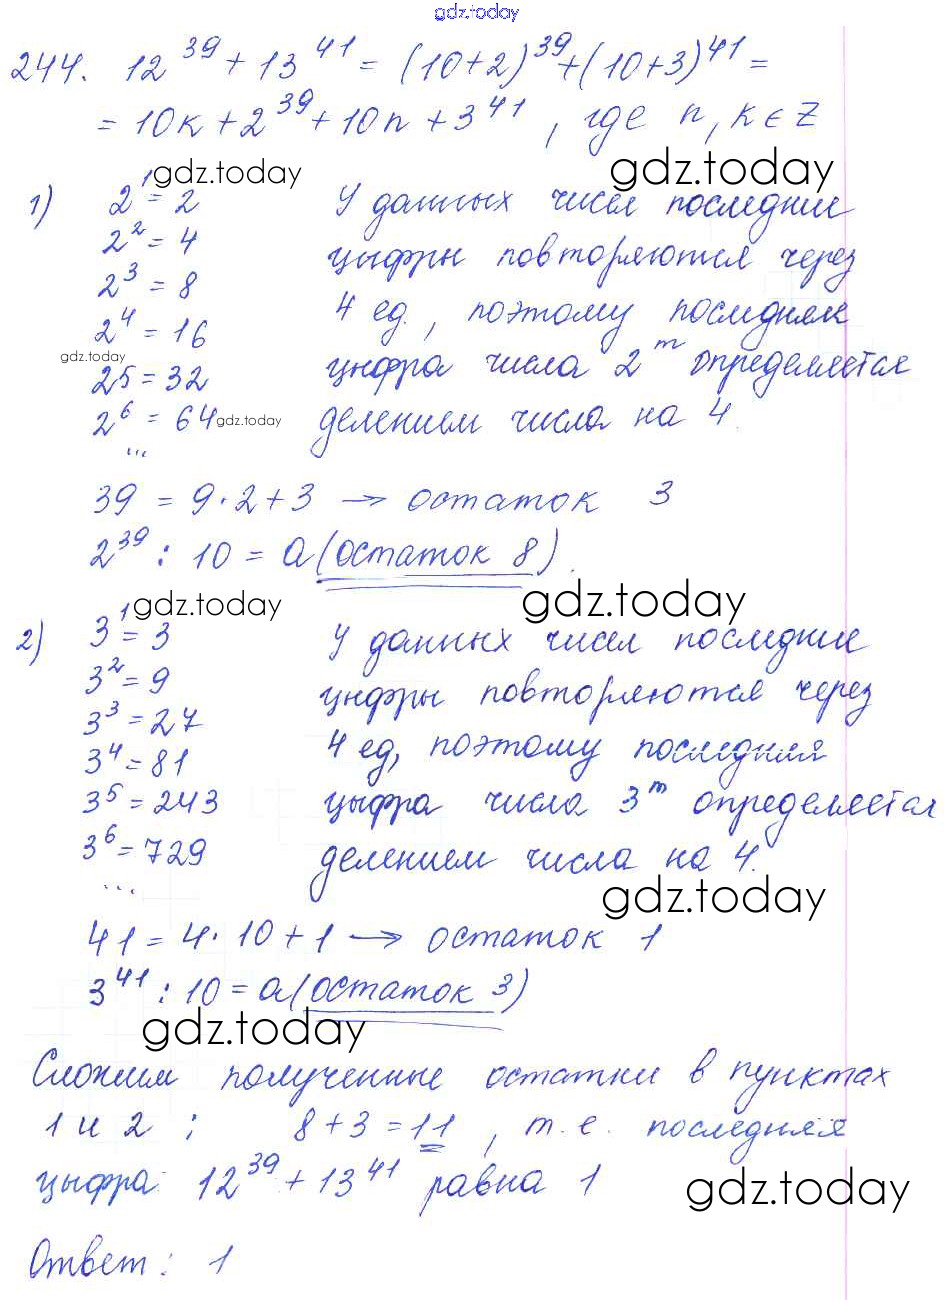 gdz.today
244. 12^39 + 13^41 = (10+2)^39 + (10+3)^41 =
= 10к + 2^39 + 10n + 3^41 , где n, к ∈ Z
gdz.today gdz.today
1) 2^1 = 2 У данных чисел последние
2^2 = 4 цыфры повторяются через
2^3 = 8 4 ед., поэтому последняя
2^4 = 16 цыфра числа 2^m определяется
gdz.today
2^5 = 32 делением числа на 4.
2^6 = 64 gdz.today
...
39 = 9·2+3 → остаток 3
2^39 : 10 = a (остаток 8).
gdz.today gdz.today
2) 3^1 = 3 У данных чисел последние
3^2 = 9 цыфры повторяются через
3^3 = 27 4 ед, поэтому последняя
3^4 = 81 цыфра числа 3^m определяется
3^5 = 243 делением числа на 4.
3^6 = 729
... gdz.today
41 = 4·10+1 → остаток 1
3^41 : 10 = a (остаток 3)
gdz.today
Сложим полученные остатки в пунктах
1 и 2 ; 8+3=11 , т.е. последняя
цыфра 12^39 + 13^41 равна 1
gdz.today
Ответ: 1